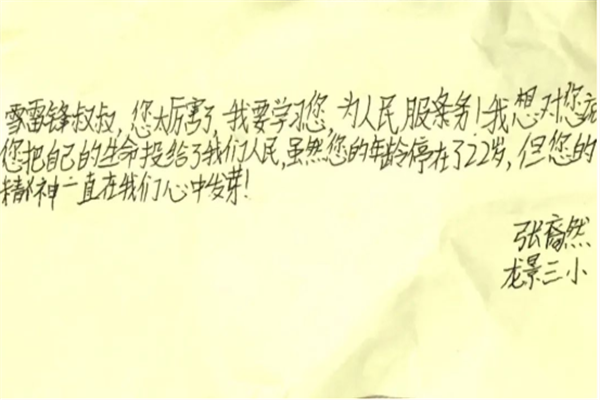 雷雷锋叔叔,您太厉害了,我要学习您,为人民服务!我想对您说
您把自己的生命投给了我们人民,虽然您的年龄停在了22岁,但您的
精神一直在我们心中发芽!
张裔然
龙景三小